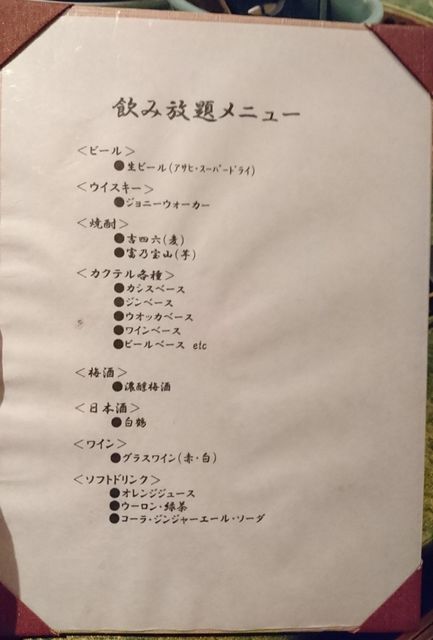 飲み放題メニュー
<ビール>
●生ビール(アサヒ・スーパードライ)
<ウイスキー>
●ジョニーウォーカー
<焼酎>
●吉四六(麦)
●富乃宝山(芋)
<カクテル各種>
●カシスベース
●ジンベース
●ウオッカベース
●ワインベース
●ビールベース etc
<梅酒>
●濃醇梅酒
<日本酒>
●白鶴
<ワイン>
●グラスワイン(赤・白)
<ソフトドリンク>
●オレンジジュース
●ウーロン・緑茶
●コーラ・ジンジャーエール・ソーダ